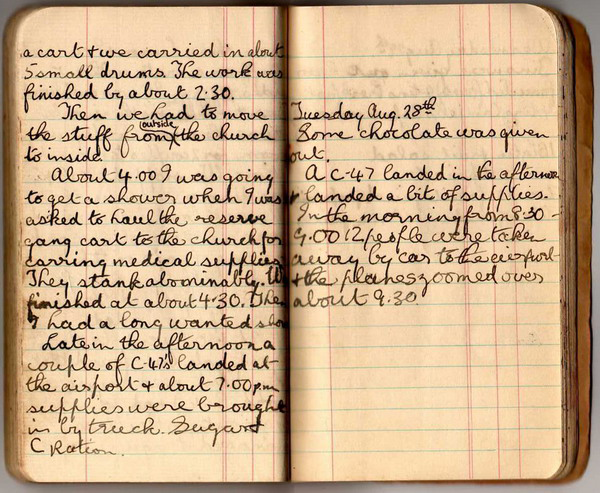 a cart & we carried in about
5 small drums. The work was
finished by about 2.30.
Then we had to move
outside
the stuff from the church
to inside.
About 4.00 I was going
to get a shower when I was
asked to haul the reserve
gang cart to the church for
carring medical supplies.
They stank abominably. We
finished at about 4.30. Then
I had a long wanted show
Late in the afternoon a
couple of C-47's landed at
the airport & about 7.00 p.m.
supplies were brought
in by truck. Sugar &
C Ration.
Tuesday Aug. 28th
Some chocolate was given
out.
A C-47 landed in the afternoon
& landed a bit of supplies.
In the morning from 8.30 -
9.00 12 people were taken
away by car to the airport
& the planes zoomed over
about 9.30